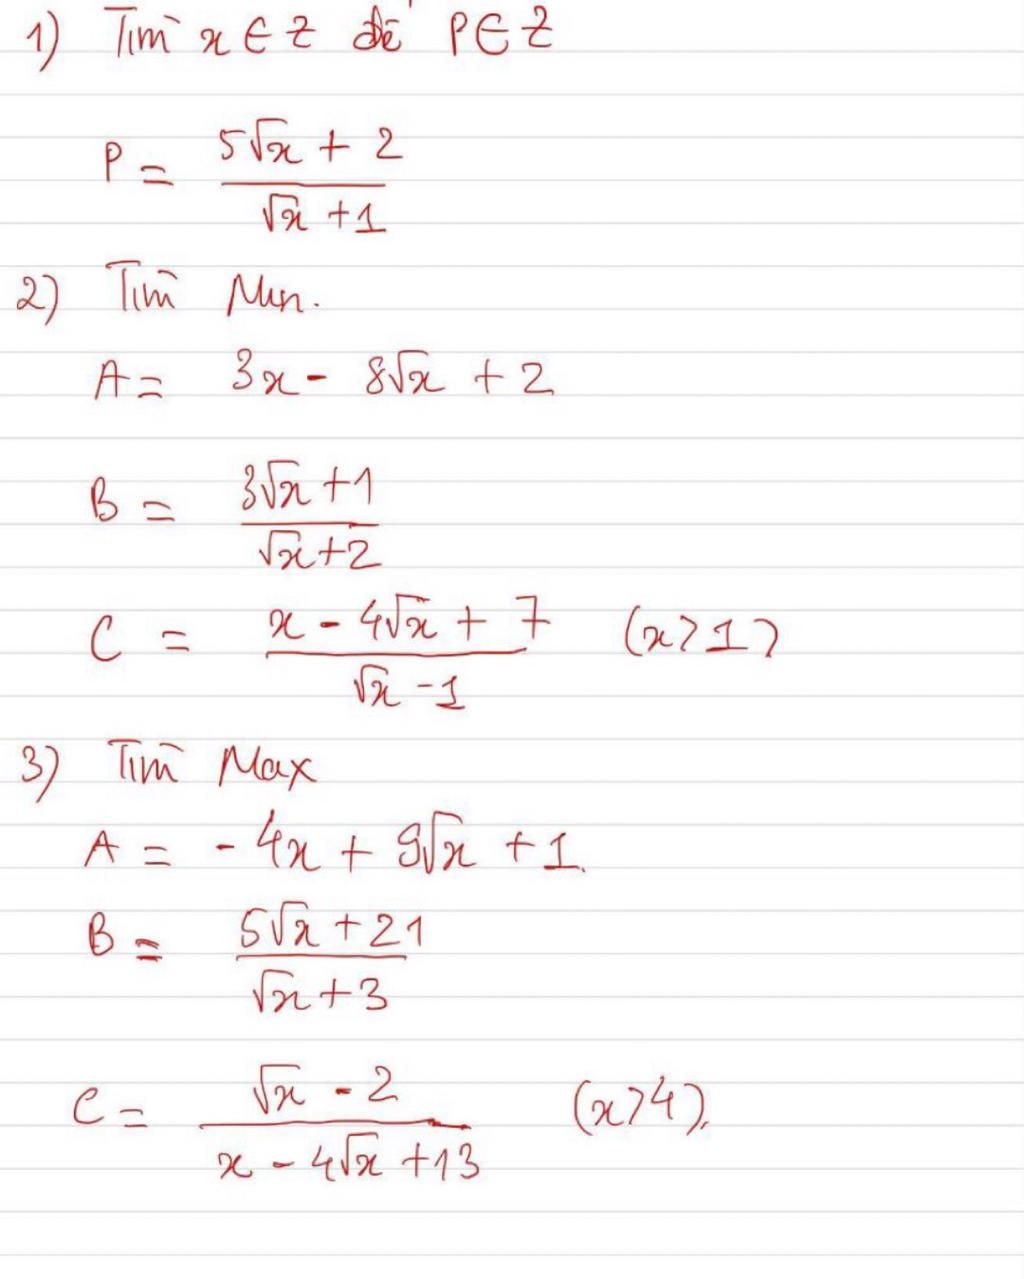 1) Tìm x ∈ Z để P ∈ Z
P = (5√x + 2)/(√x + 1)
2) Tìm Min.
A = 3x - 8√x + 2
B = (3√x + 1)/(√x + 2)
C = (x - 4√x + 7)/(√x - 1) (x > 1)
3) Tìm Max
A = - 4x + 9√x + 1.
B = (5√x + 21)/(√x + 3)
C = (√x - 2)/(x - 4√x + 13) (x > 4).